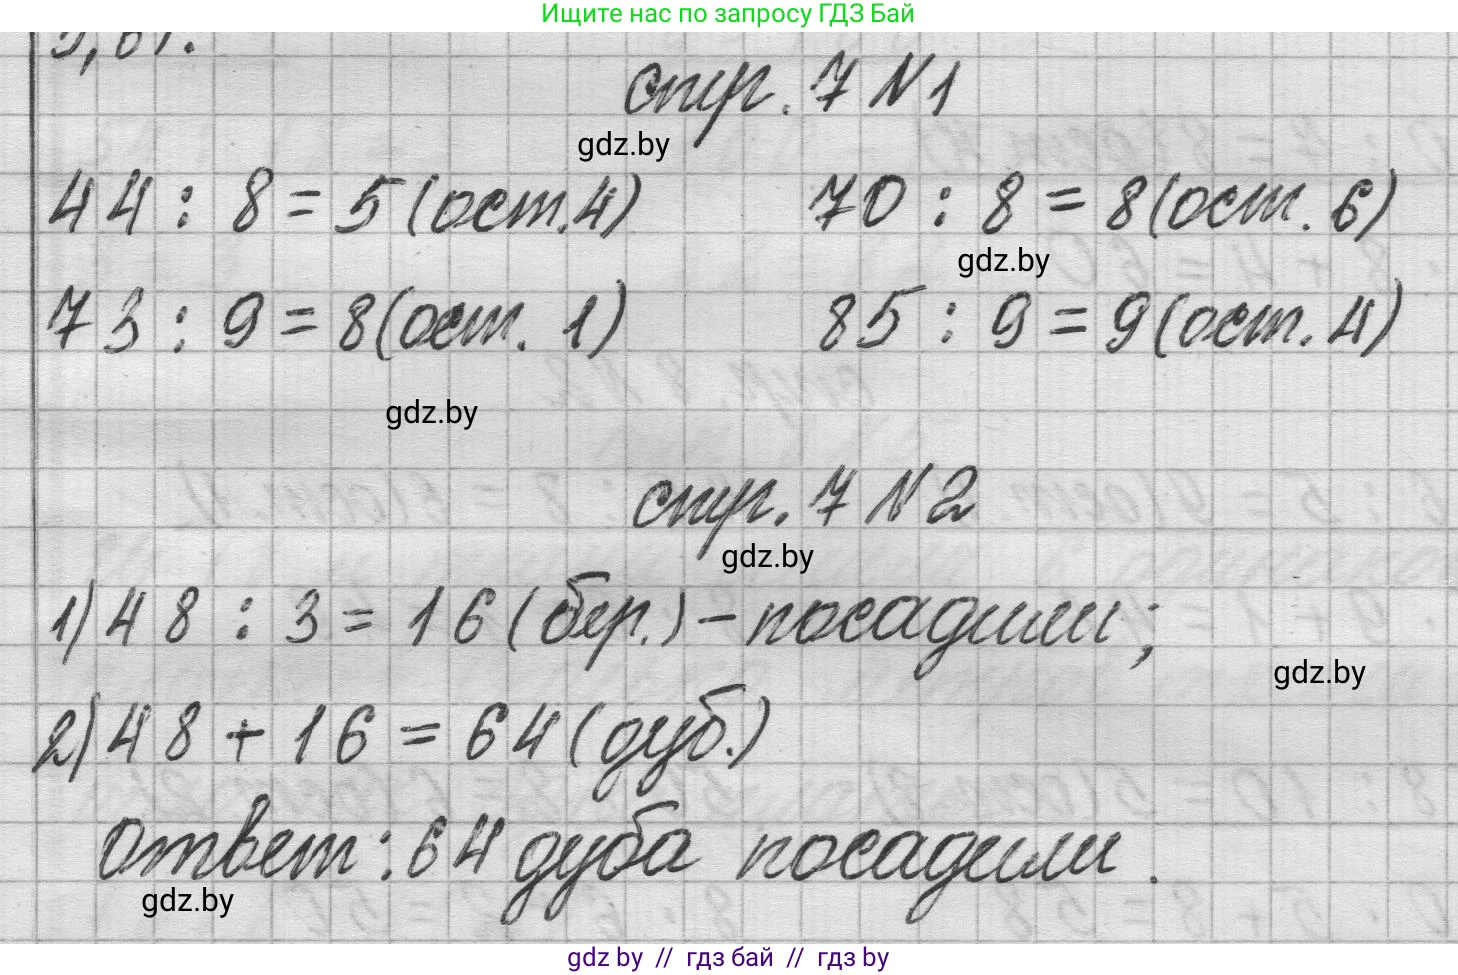 Ищите нас по запросу ГДЗ Бай
стр. 7 N1
gdz.by
44 : 8 = 5 (ост. 4) 70 : 8 = 8 (ост. 6)
gdz.by
73 : 9 = 8 (ост. 1) 85 : 9 = 9 (ост. 4)
gdz.by
стр. 7 N2
gdz.by
1) 48 : 3 = 16 (бер.) - посадили;
gdz.by
2) 48 + 16 = 64 (дуб.)
ответ: 64 дуба посадили.
gdz.by
gdz by // гдз бай // гдз by